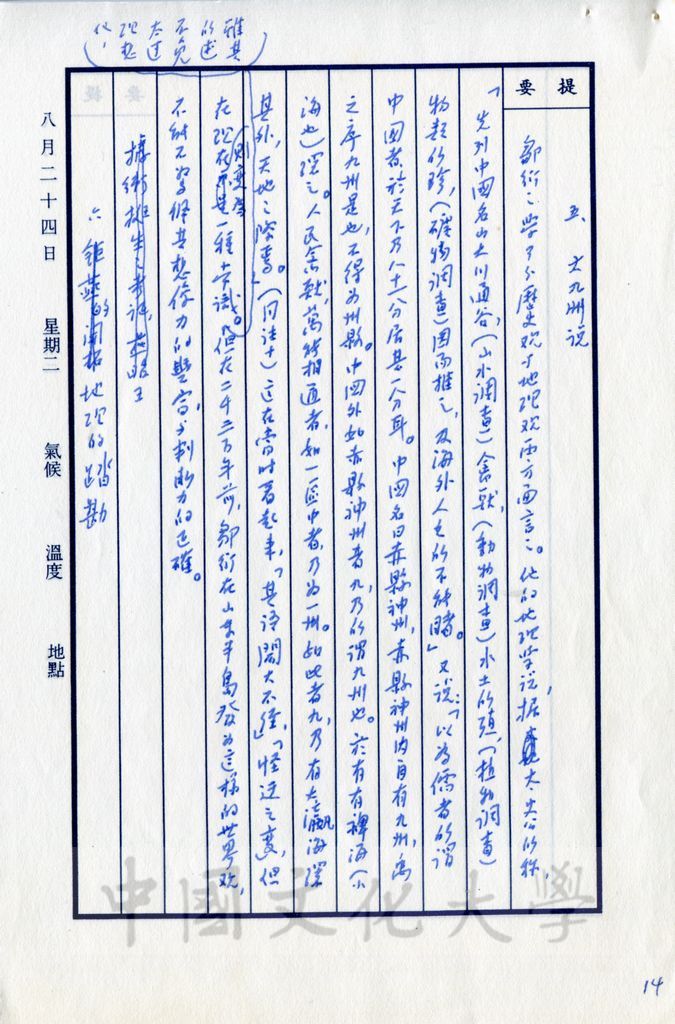 提要
五、大九洲說
鄒衍之學可分歷史观与地理观兩方面言之。他的地理学說，据太史公的称，
「先列中國名山大川通谷，（山水調查）禽獸，（動物調查）水土的殖，（植物調查）
物類的珍，（礦物調查）因而推之，及海外人之的不能睹。」又說：「以為儒者的謂
中國者於天下乃八十一分居其一分耳。中國名曰赤縣神州，赤縣神州內自有九州，禹
之序九州是也，不得为州縣。中國外如赤縣神州者九，乃所謂九州也。於有有裨海（小
海也）環之。人民禽獸，萬能相通者，如一區中者，乃为一州。如此者九，乃有大瀛海環
其外，天地之際焉。」（同註十）這在當時看起來，「其語閎大不經」，「怪迂之變，但
在現在則變為一種常識。但在二千三百年前，鄒衍在山東半島發为這樣的世界观，
雖其
的述
不免
太过
理想
化，
不能不為佩其想像力的豐富，与判斷力的正確。
據衛挺生考証，燕昭王
六、鉅燕的開拓地理的踏勘
八月二十四日 星期二 氣候 溫度 地點
中國文化大學
14